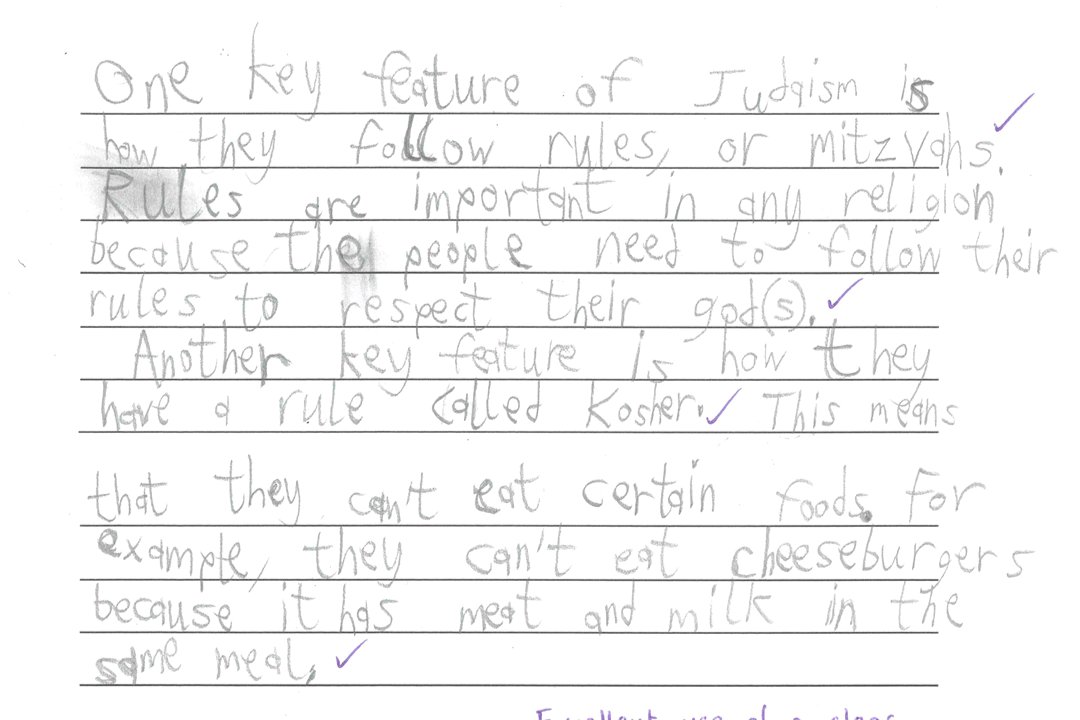 One key feature of Judaism is
how they follow rules, or mitzvahs.
Rules are important in any religion
because the people need to follow their
rules to respect their god(s).
Another key feature is how they
have a rule called Kosher. This means
that they can't eat certain foods. For
example, they can't eat cheeseburgers
because it has meat and milk in the
same meal.
Excellent use of a